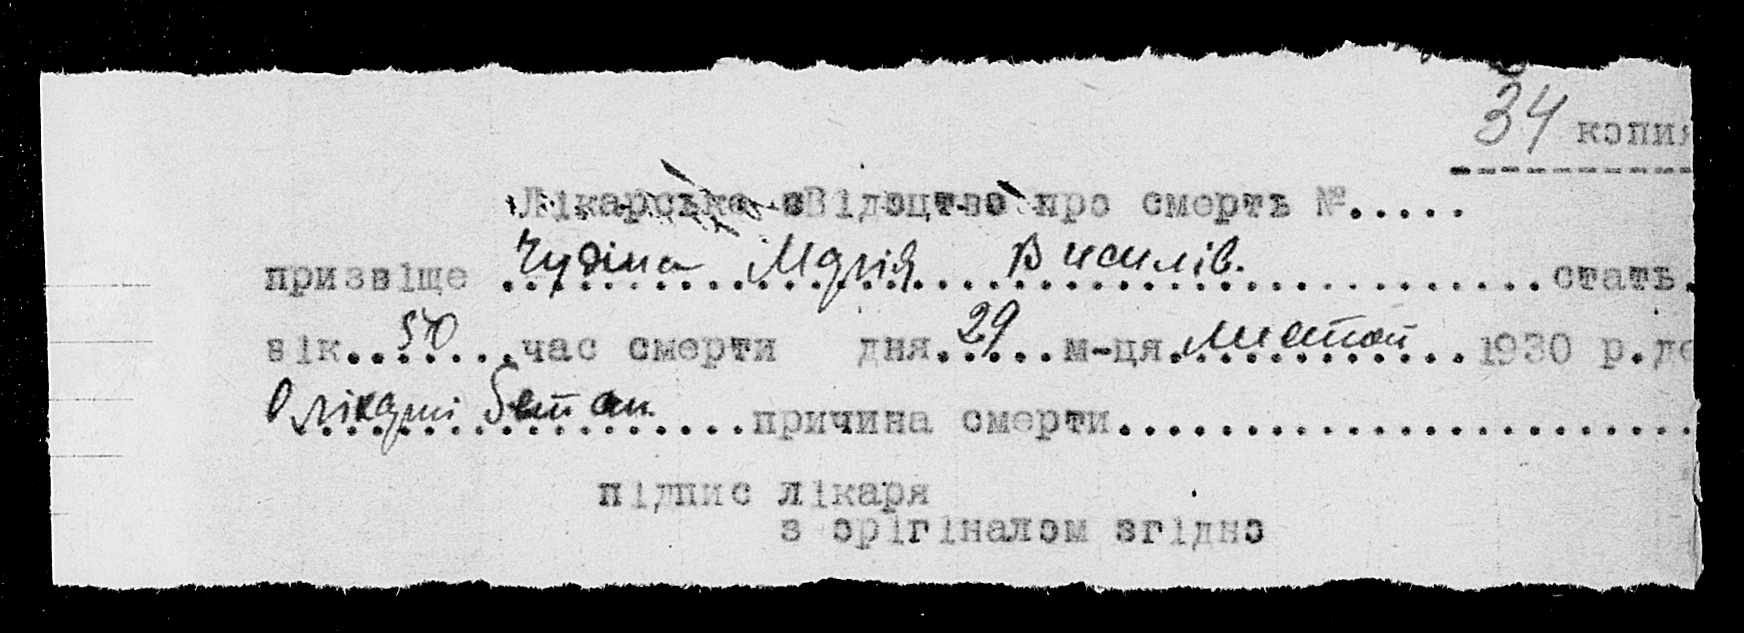 34 копия
Лікарське свідоцтво про смерть №.....
призвіще Чудіна Марія Василів. стать.
вік 50 час смерти дня 29 м-ця 1930 р. де
причина смерти
підпис лікаря
з орігіналом згідно